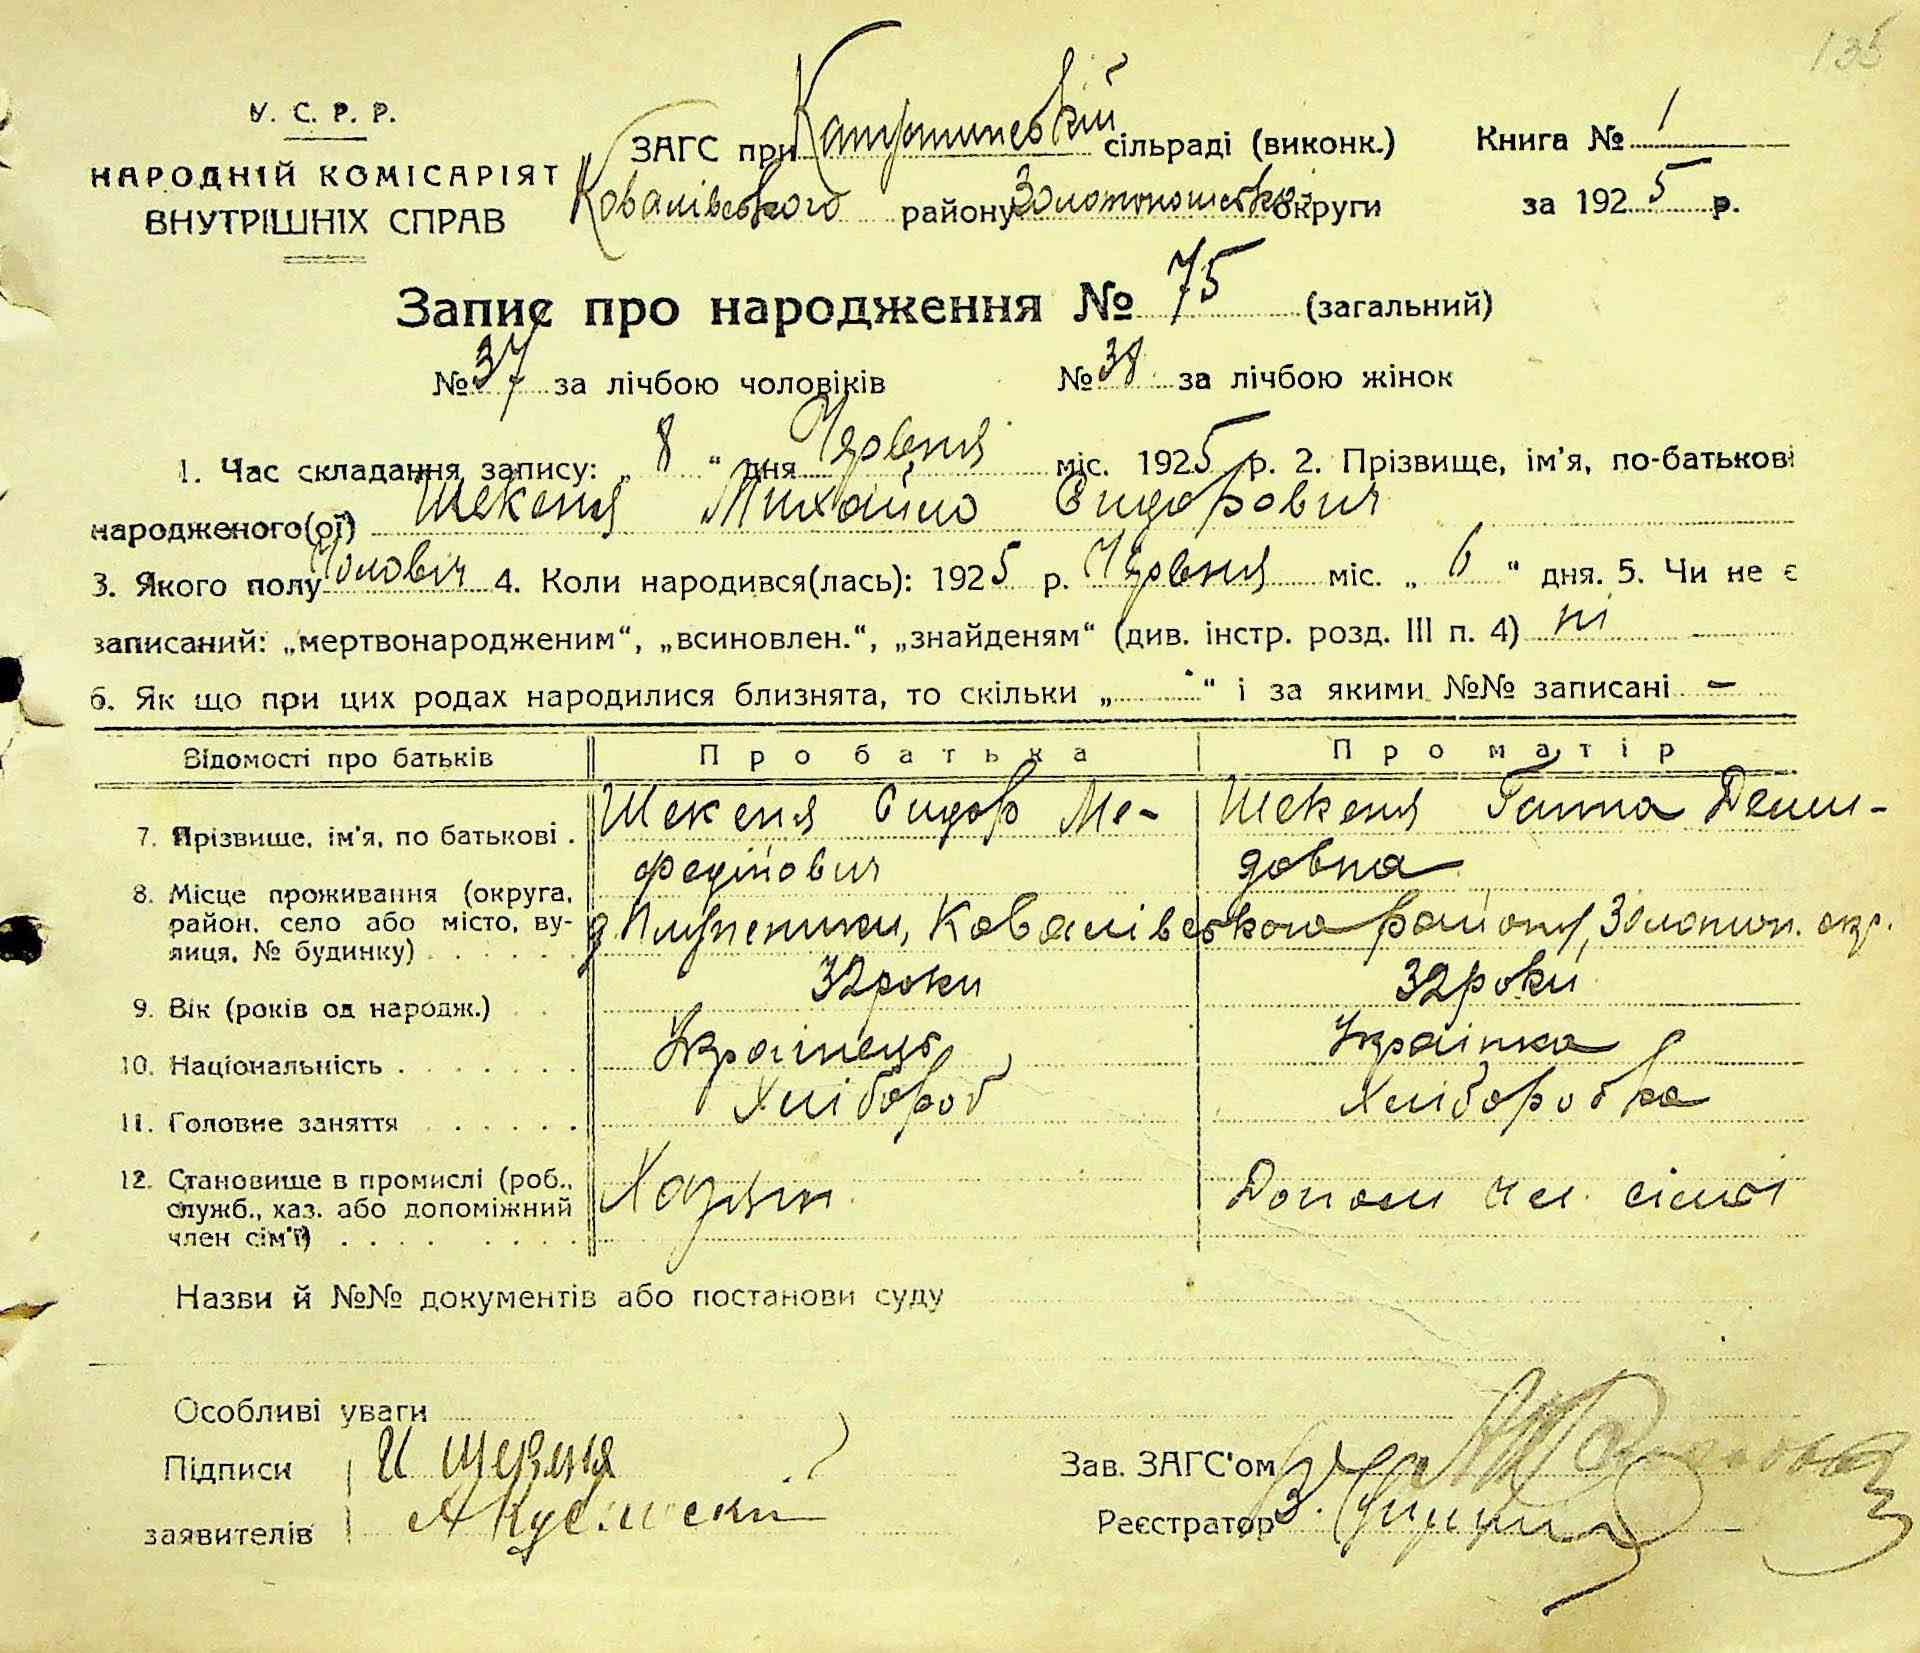 135
У. С. Р. Р.
НАРОДНІЙ КОМІСАРІЯТ
ВНУТРІШНІХ СПРАВ
ЗАГС при сільраді (виконк.)
Ковалівського району Золотоношської округи
Книга № 1
за 1925 р.
Запис про народження № 75 (загальний)
№ 37 за лічбою чоловіків № 38 за лічбою жінок
1. Час складання запису: „ 8 “ дня Червня міс. 1925 р. 2. Прізвище, ім'я, по-батькові
народженого(ої) Шекеня Михайло Сидорович
3. Якого полу Чолович 4. Коли народився(лась): 1925 р. Червня міс. „ 6 “ дня. 5. Чи не є
записаний: „мертвонародженим“, „всиновлен.“, „знайденям“ (див. інстр. розд. III п. 4) ні
6. Як що при цих родах народилися близнята, то скільки „ - “ і за якими №№ записані -
Відомості про батьків Про батька Про матір
7. Прізвище, ім'я, по батькові . Шекеня Сидор Ме- Шекеня Ганна Деми-
федійович довна
8. Місце проживання (округа, район, село або місто, вулиця, № будинку) Ковалівського району, Золотон. окр.
9. Вік (років од народж.) 32 роки 32 роки
10. Національність Українець Українка
11. Головне заняття Хлібороб Хліборобка
12. Становище в промислі (роб., служб., хаз. або допоміжний член сім'ї) Хазяїн Допом чл. сімьі
Назви й №№ документів або постанови суду
Особливі уваги
Підписи
заявителів
Зав. ЗАГС'ом
Реєстратор